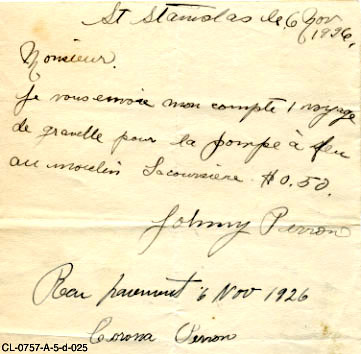 St Stanislas le 6 Nov
1926,
Monsieur.
Je vous envoie mon compte 1 voyage
de gravelle pour la pompe à feu
au moulin Lacoursière. $0.50.
Johnny Perron
Recu paiement 6 Nov 1926
Corona Perron
CL-0757-A-5-d-025